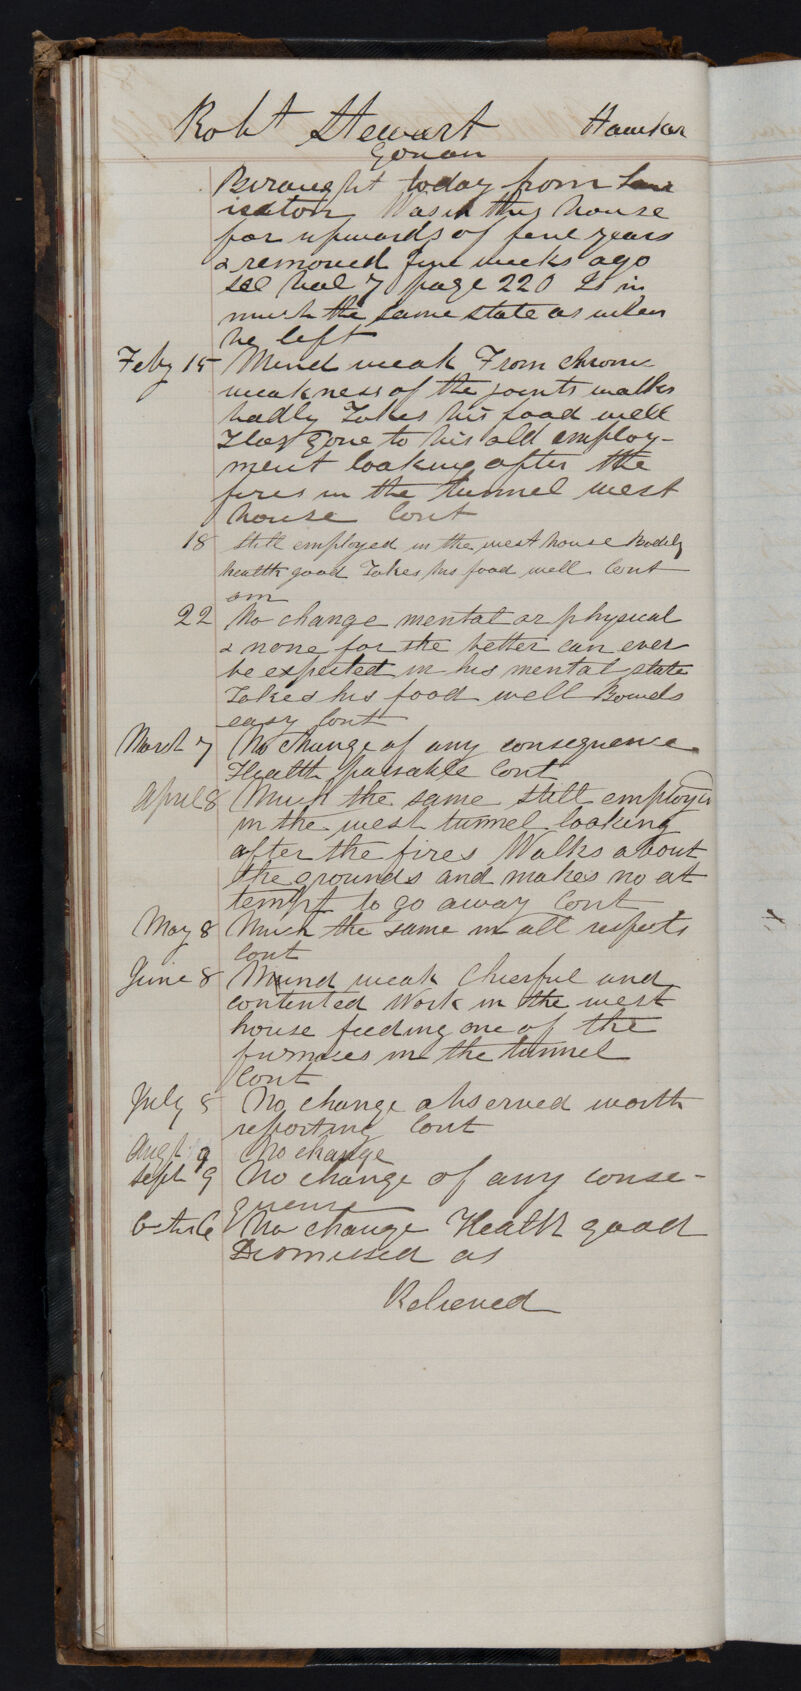 Robt Stewart Hawker
Govan
Brought today from San
iston Was in this house
for upwards of five years
& removed five weeks ago
see Vol 7 page 220 Is in
much the same state as when
he left
Feby 15 Mind weak From chronic
weakness of the joints walks
badly Takes his food well
Has gone to his old employ-
ment looking after the
fires in the tunnel west
house Cont
18 Still employed in the west house Bodily
health good Takes his food well Cont
22 No change mental or physical
& none for the better can ever
be expected in his mental state
Takes his food well Bowels
easy Cont
March 7 No change of any consequence
Health passable Cont
April 8 Much the same still employed
in the west tunnel looking
after the fires Walks about
the grounds and makes no at
tempt to go away Cont
May 8 Much the same in all respects
Cont
June 8 Mind weak Cheerful and
contented Work in the west
house feeding one of the
furnaces in the tunnel
Cont
July 8 No change observed worth
reporting Cont
Augt 9 No change
Sept 9 No change of any conse-
quence
No change Health good
Dismissed as
Relieved